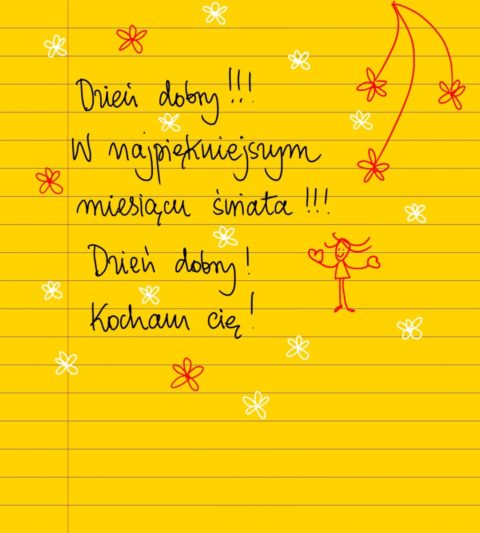 Dzień dobry!!!
W najpiękniejszym
miesiącu świata!!!
Dzień dobry!
Kocham cię!